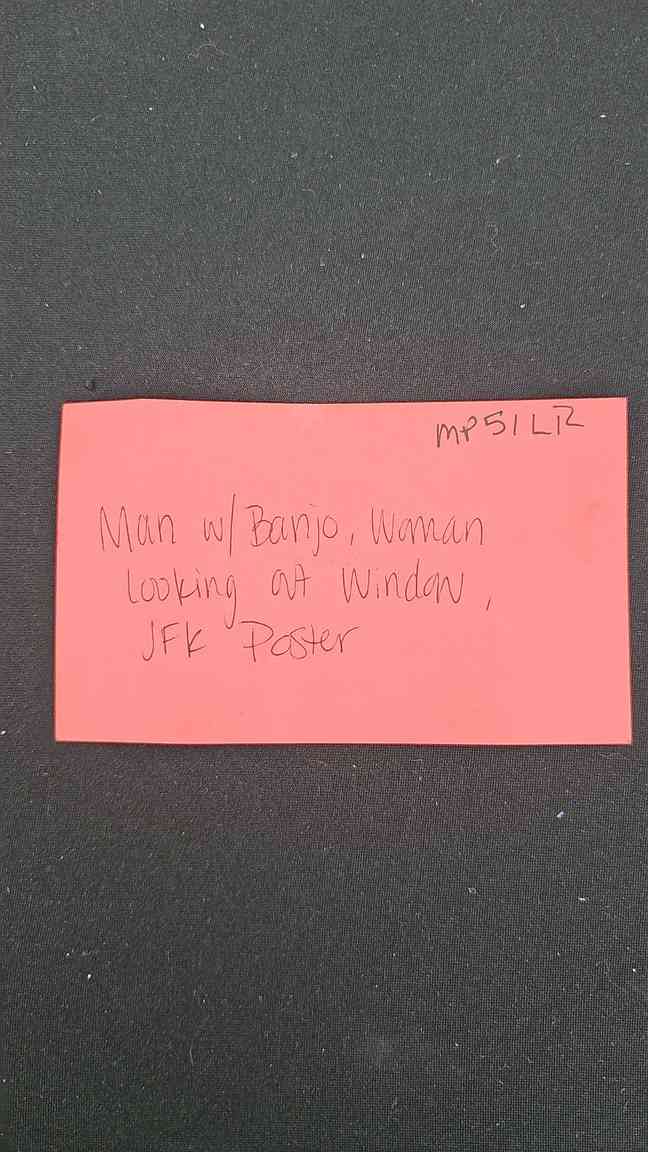 MP51LR
Man w/ Banjo, Woman
Looking at Window,
JFK Poster